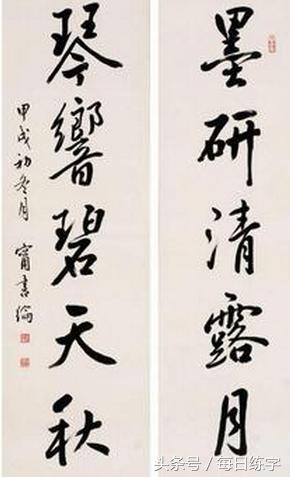 墨研清露月
琴響碧天秋
甲戌初冬月 甯書綸
头条号／每日练字